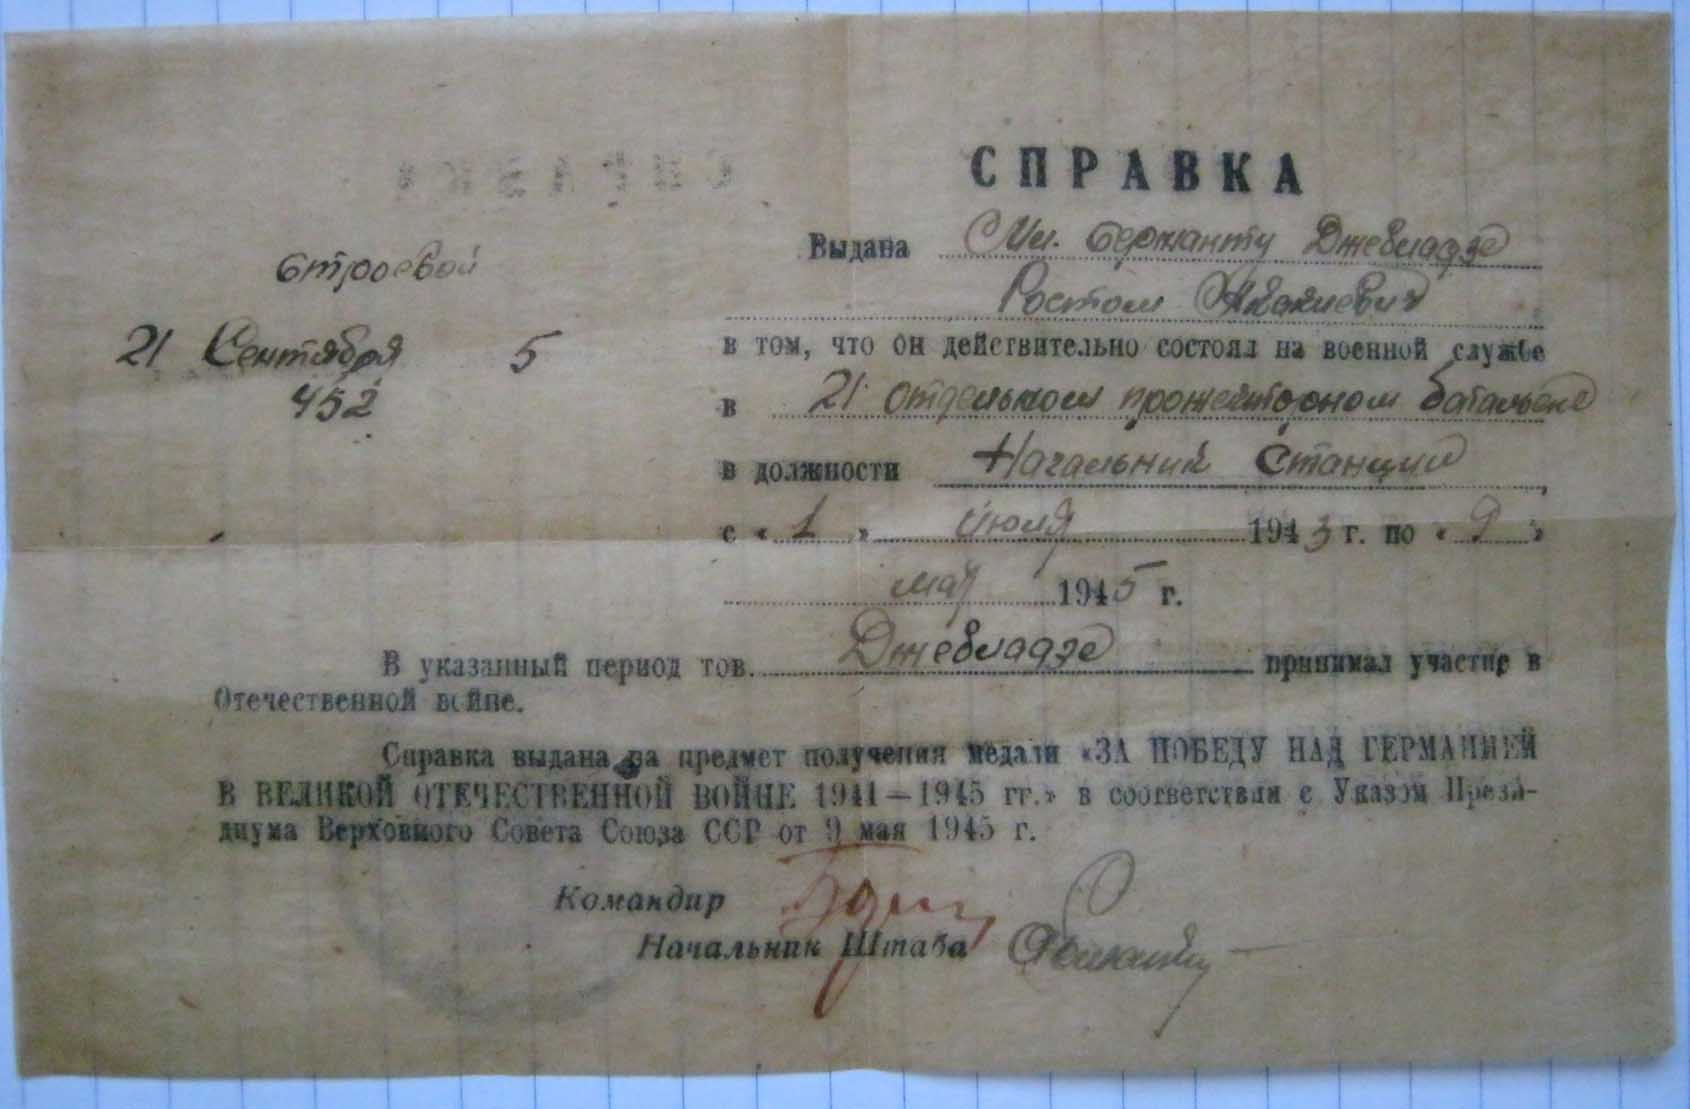 СПРАВКА
строевой
21 Сентября 5
452
Выдана Мл. Сержанту Джебладзе
Ростом Акакиевич
в том, что он действительно состоял на военной службе
в 21 отдельном прожекторном батальоне
в должности Начальник Станции
с «1» июля 1943 г. по «9»
мая 1945 г.
В указанный период тов. Джебладзе принимал участие в
Отечественной войне.
Справка выдана на предмет получения медали «ЗА ПОБЕДУ НАД ГЕРМАНИЕЙ
В ВЕЛИКОЙ ОТЕЧЕСТВЕННОЙ ВОЙНЕ 1941—1945 гг.» в соответствии с Указом Прези-
диума Верховного Совета Союза ССР от 9 мая 1945 г.
Командир
Начальник Штаба